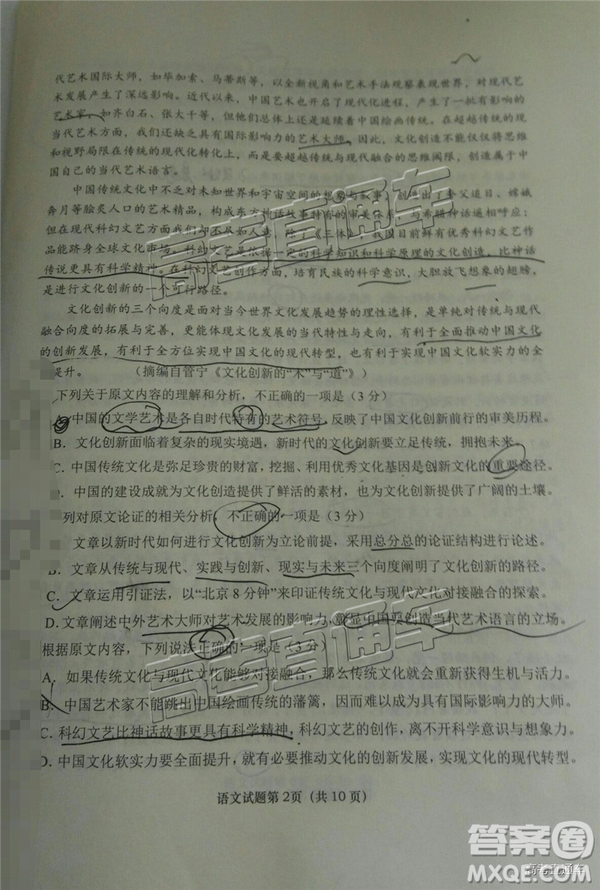 代艺术国际大师，如毕加索、马蒂斯等，以全新视角和艺术手法观察表现世界，对现代艺
术发展产生了深远影响。近代以来，中国艺术也开启了现代化进程，产生了一批有影响的
艺术家，如齐白石、张大千等，但总体上还是继承与超越传统的艺术创造，在超越传统的现
当代艺术方面，我们还缺乏具有国际影响力的艺术大师。因此，文化创新不能仅仅将思维
和视野局限在传统的现代化转化上，而是要超越传统与现代融合的思维阈限，创造属于中
国自己的当代艺术语言。
中国传统文化中不乏对未知世界和宇宙空间的想象与叙事，创造了夸父追日、嫦娥
奔月等脍炙人口的艺术精品，构成
但在现代科幻文艺方面却不如人意。除了《三体》，我国目前鲜有优秀科幻文艺作
品能跻身全球文化市场。科幻文艺是依据一定的科学知识和科学原理的文化创造，比神话
传说更具有科学精神。在科幻文艺创作方面，培育民族的科学意识，大胆放飞想象的翅膀，
是进行文化创新的一个可行路径。
文化创新的三个向度是面对当今世界文化发展趋势的理性选择，是单纯传统与现代
融合向度的拓展与完善，更能体现文化发展的当代特性与走向，有利于全面推动中国文化
的创新发展，有利于全方位实现中国文化的现代转型，也有利于实现中国文化软实力的全
面提升。（摘编自管宁《文化创新的“术”与“道”》）
下列关于原文内容的理解和分析，不正确的一项是（3 分）
中国的文学艺术是各自时代特有的艺术符号，反映了中国文化创新前行的审美历程。
B．文化创新面临着复杂的现实境遇，新时代的文化创新要立足传统，拥抱未来。
C．中国传统文化是弥足珍贵的财富，挖掘、利用优秀文化基因是创新文化的重要途径。
D．中国的建设成就为文化创造提供了鲜活的素材，也为文化创新提供了广阔的土壤。
列对原文论证的相关分析，不正确的一项是（3 分）
文章以新时代如何进行文化创新为立论前提，采用总分总的论证结构进行论述。
B．文章从传统与现代、实践与创新、现实与未来三个向度阐明了文化创新的路径。
C．文章运用引证法，以“北京 8 分钟”来印证传统文化与现代对接融合的探索。
D．文章阐述中外艺术大师对艺术发展的影响力，意显中国具创造当代艺术语言的立场。
根据原文内容，下列说法正确的一项是（3 分）
A．如果传统文化与现代文化能够对接融合，那么传统文化就能重新获得生机与活力。
B．中国艺术家不能跳出中国绘画传统的藩篱，因而难以产生具有国际影响力的大师。
C．科幻文艺比神话故事更具有科学精神，科幻文艺的创作，离不开科学意识与想象力。
D．中国文化软实力要全面提升，就有必要推动文化的创新发展，实现文化的现代转型。
语文试题第 2页（共 10 页）
高考直通车
高考直通车
答案卷
MXQE.COM